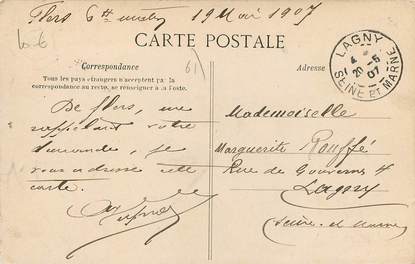 Flers 6 19 Mai 1907
CARTE POSTALE
Correspondance
Tous les pays étrangers n'acceptent pas la
correspondance au recto, se renseigner à la Poste.
De flers, me
rappelant votre
demande, je
vous adresse cette
carte.
61
Adresse
LAGNY
4
20-5
07
SEINE ET MARNE
Mademoiselle
Marguerite Rouffé
Rue de Gouvernes
Lagny
Seine-et-Marne